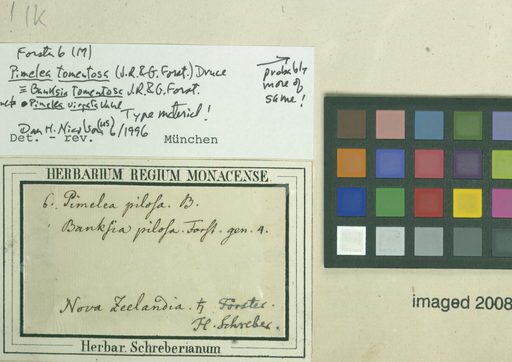 Forster 6 (M)
Pimelea tomentosa (J.R.&G. Forst.) Druce
≡ Banksia tomentosa J.R.&G. Forst.
Pimelea virgata Vahl
Type material!
Dan H. Nicolson (US) 6/1996
Det. - rev. München
probably
more of
same!
HERBARIUM REGIUM MONACENSE.
6. Pimelea pilosa. B.
Banksia pilosa. Forst. gen. 4.
Nova Zeelandia. ♄ Forster.
H. Schreber.
Herbar. Schreberianum
imaged 2008